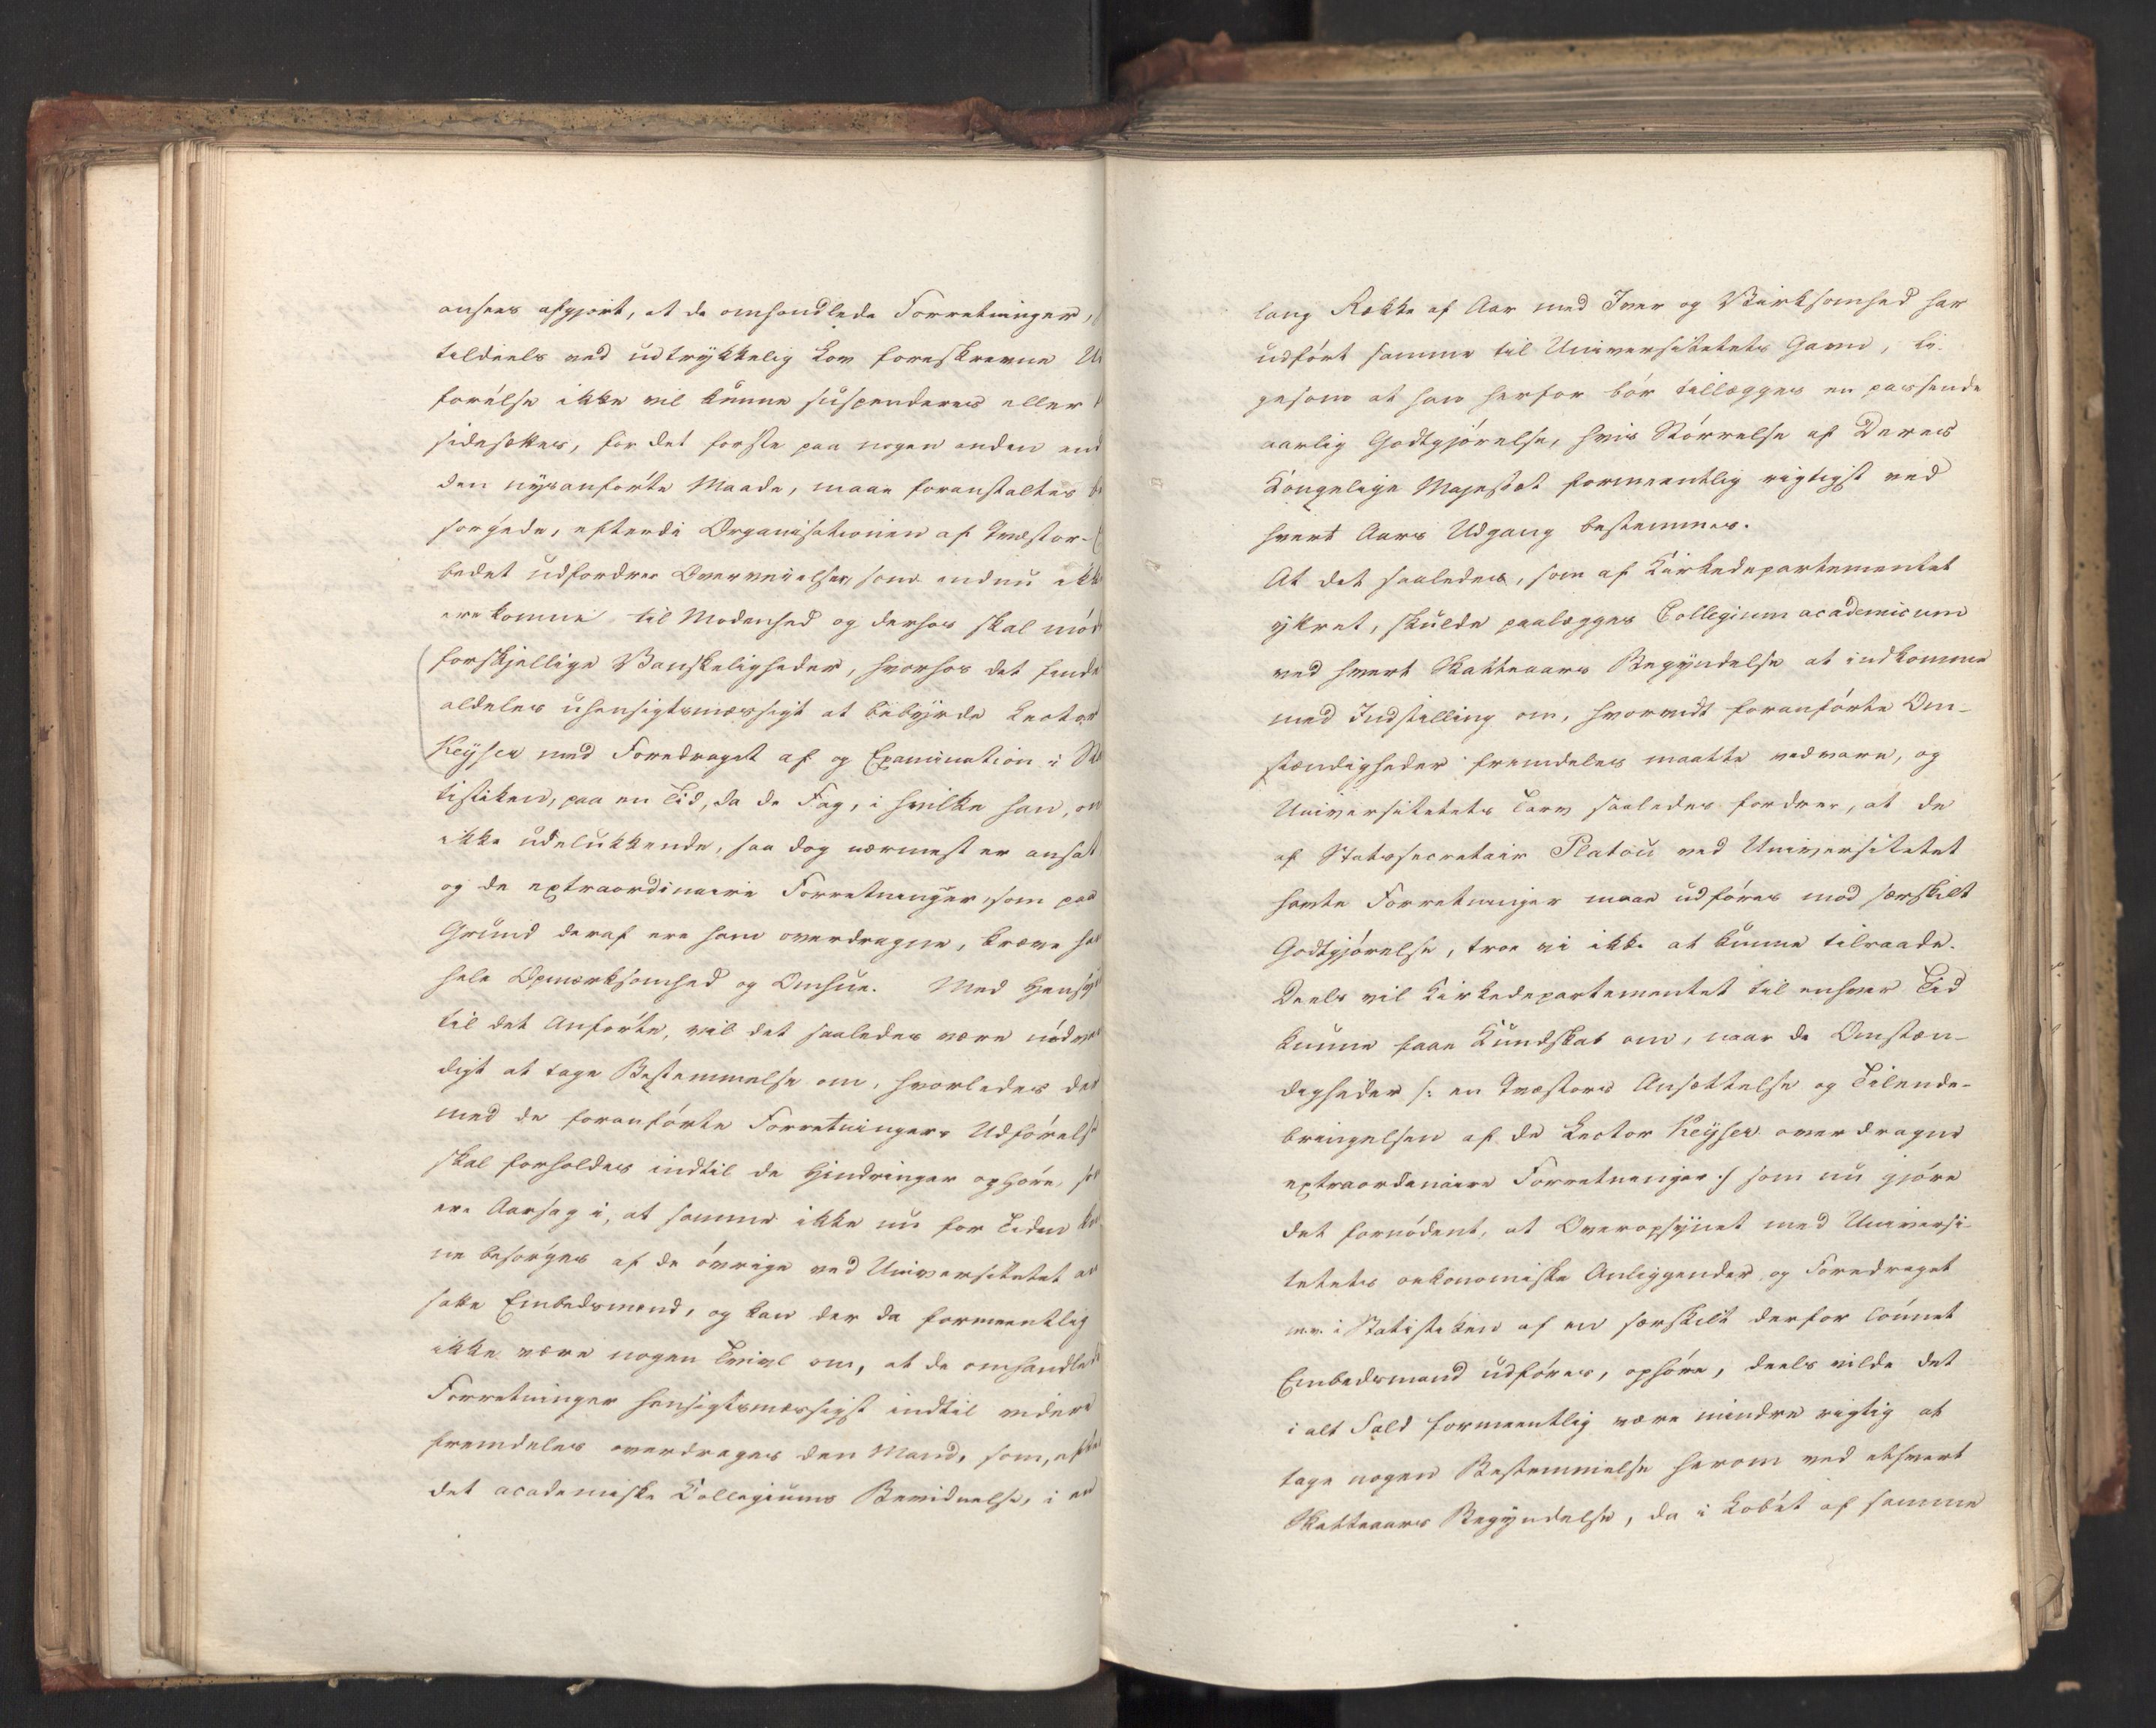 ansees afgjort, at de omhandlede Forretninger,
tildeels ved udtrykkelig Lov foreskrevne U
førelse ikke vil kunne suspenderes eller
sidesættes, for det første paa nogen anden end
den nysanførte Maade, maae foranstaltes be
sørgede, efterdi Organisationen af Qvæstor-E
bedet udfordrer Overveielser, som endnu ikk
ere komne til Modenhed og derhos skal mød
forskjellige Vanskeligheder, hvorhos det finde
aldeles uhensigtsmæssigt at bebyrde Lector
Keyser med Foredraget af og Examination i Sta
tistiken, paa en Tid, da de Fag, i hvilke han, om
ikke udelukkende, saa dog nærmest er ansat
og de extraordinaire Forretninger, som paa
Grund deraf ere ham overdragne, kræve hans
hele Opmærksomhed og Omhue. Med Hensyn
til det Anførte, vil det saaledes være nødven
digt at tage Bestemmelse om, hvorledes der
med de foranførte Forretningers Udførelse
skal forholdes indtil de Hindringer ophøre, som
ere Aarsag i, at samme ikke nu for Tiden kun
ne besørges af de øvrige ved Universitetet an
satte Embedsmænd, og kan der da formeentlig
ikke være nogen Tvivl om, at de omhandlede
Forretninger hensigtsmæssigst indtil videre
fremdeles overdrages den Mand, som, efter
det academiske Collegiums Bevidnelse, i en
lang Række af Aar med Iver og Virksomhed har
udført samme til Universitetets Gavn, li-
gesom at han herfor bør tillægges en passende
aarlig Godtgjørelse, hvis Størrelse af Deres
Kongelige Majestæt formeentlig rigtigst ved
hvert Aars Udgang bestemmes.
At det saaledes, som af Kirkedepartementet
yttret, skulde paalægges Collegium academicum
ved hvert Skatteaars Begyndelse at indkomme
med Indstilling om, hvorvidt foranførte Om-
stændigheder fremdeles maatte vedvare, og
Universitetets Tarv saaledes fordrer, at de
af Statssecretair Platou ved Universitetet
havte Forretninger maae udføres mod særskilt
Godtgjørelse, troe vi ikke at kunne tilraade.
Deels vil Kirkedepartementet til enhver Tid
kunne faae Kundskab om, naar de Omstæn-
digheder /: en Qvæstors Ansættelse og Tilende-
bringelsen af de Lector Keyser overdragne
extraordinaire Forretninger :/ som nu gjøre
det fornødent, at Overopsynet med Universi-
tetets oekonomiske Anliggender og Foredraget
m.v. i Statistiken af en særskilt derfor lønnet
Embedsmand udføres, ophøre, deels vilde det
i alt Fald formeentlig være mindre rigtig at
tage nogen Bestemmelse herom ved ethvert
Skatteaars Begyndelse, da i Løbet af samme